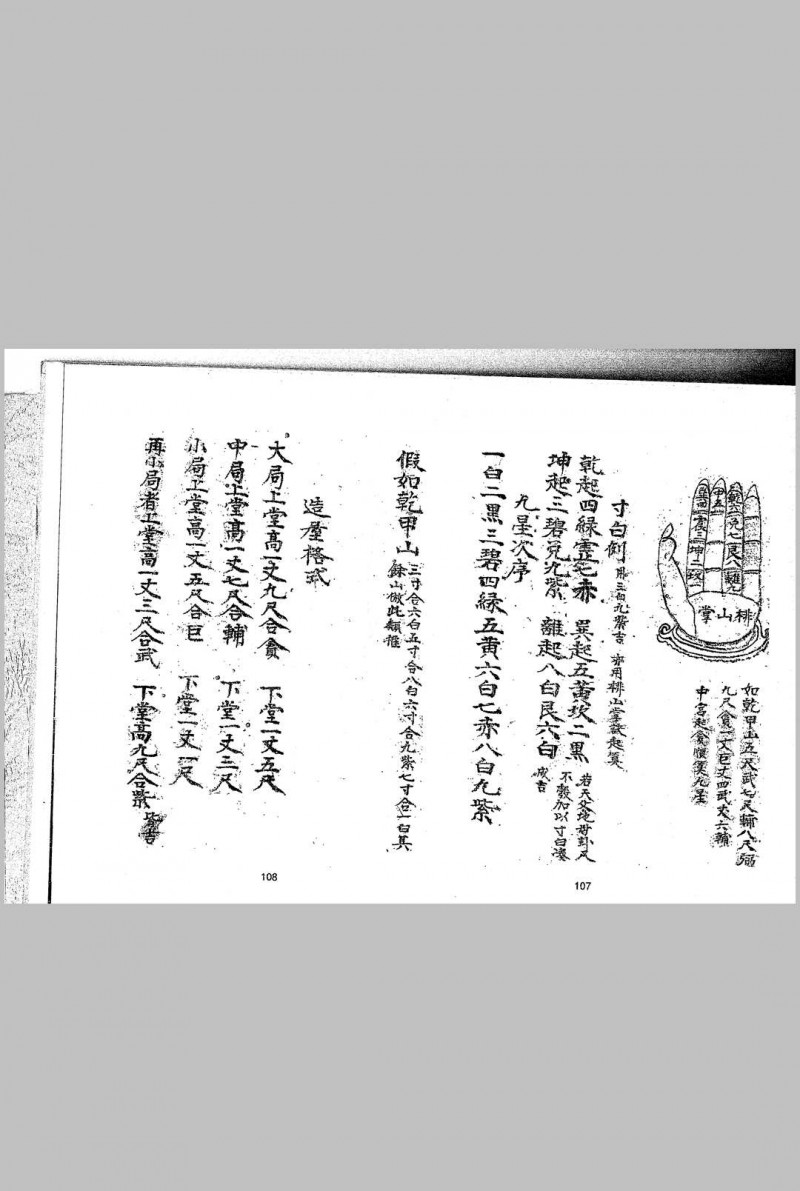 巽四 震三 坤二 坎一
中五
乾六 兌七 艮八 離九
排山掌
如乾甲山五尺武七尺輔八尺弼
九尺貪一丈巨丈四武丈六輔
中宮起貪順復九星
寸白例 用三白九紫吉 亦用排山掌訣起篡
乾起四緑震七赤 巽起五黃坎二黒 若天父地母卦尺
坤起三碧兌九紫 離起八白艮六白 不殼加以寸白湊成吉
九星次序
一白二黒三碧四緑五黃六白七赤八白九紫
107
假如乾甲山 三寸合六白五寸合八白六寸合九紫七寸合一白其
餘山倣此類推
造屋格式
大局上堂高一丈九尺合貪 下堂一丈五尺
中局上堂高一丈七尺合輔 下堂一丈三尺
小局上堂高一丈五尺合巨 下堂一丈一尺
再小局者上堂高一丈三尺合武 下堂高九尺合紫 皆吉
108